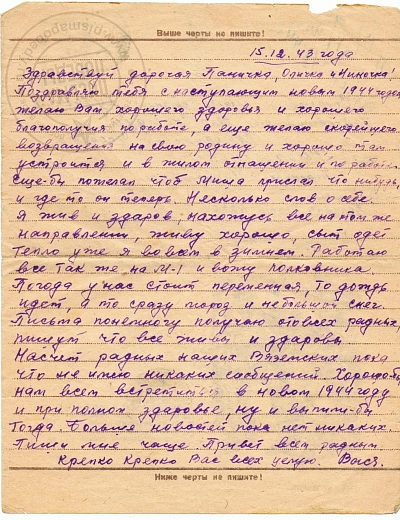 Выше черты не пишите!
15.12.43 года
Здравствуй дарогая Паничка, Оличка и Ниночка!
Поздравляю тебя с наступающим новым 1944 годом
желаю Вам хорошего здоровья и хорошего
благополучия по работе, а еще желаю скорейшего
возвращения на свою родину и хорошо там
устроится и в жилом отнашении и по работе
Еще-бы пожелал чтоб Миша прислал что нибудь,
и где то он теперь. Несколько слов о себе.
Я жив и здаров, нахожусь все на том же
направлении, живу хорошо, сыт одет
тепло уже я во всем в зимнем. Работаю
все так же на М-1 и вожу полковника.
Погода у нас стоит переменная, то дождь
идет, а то сразу мороз и небольшой снег.
Письма понемногу получаю ото всех радных,
пишут что все живы и здаровы
Насчет радных наших Вяземских пока
что не имею никаких сообщений. Хорошо-бы
нам всем встретиться в новом 1944 году
и при полном здаровье, ну и выпили-бы
тогда. Больше новостей пока нет никаких.
Пиши мне чаще Привет всем радным
Крепко Крепко Вас всех целую. Вася.
Ниже черты не пишите!